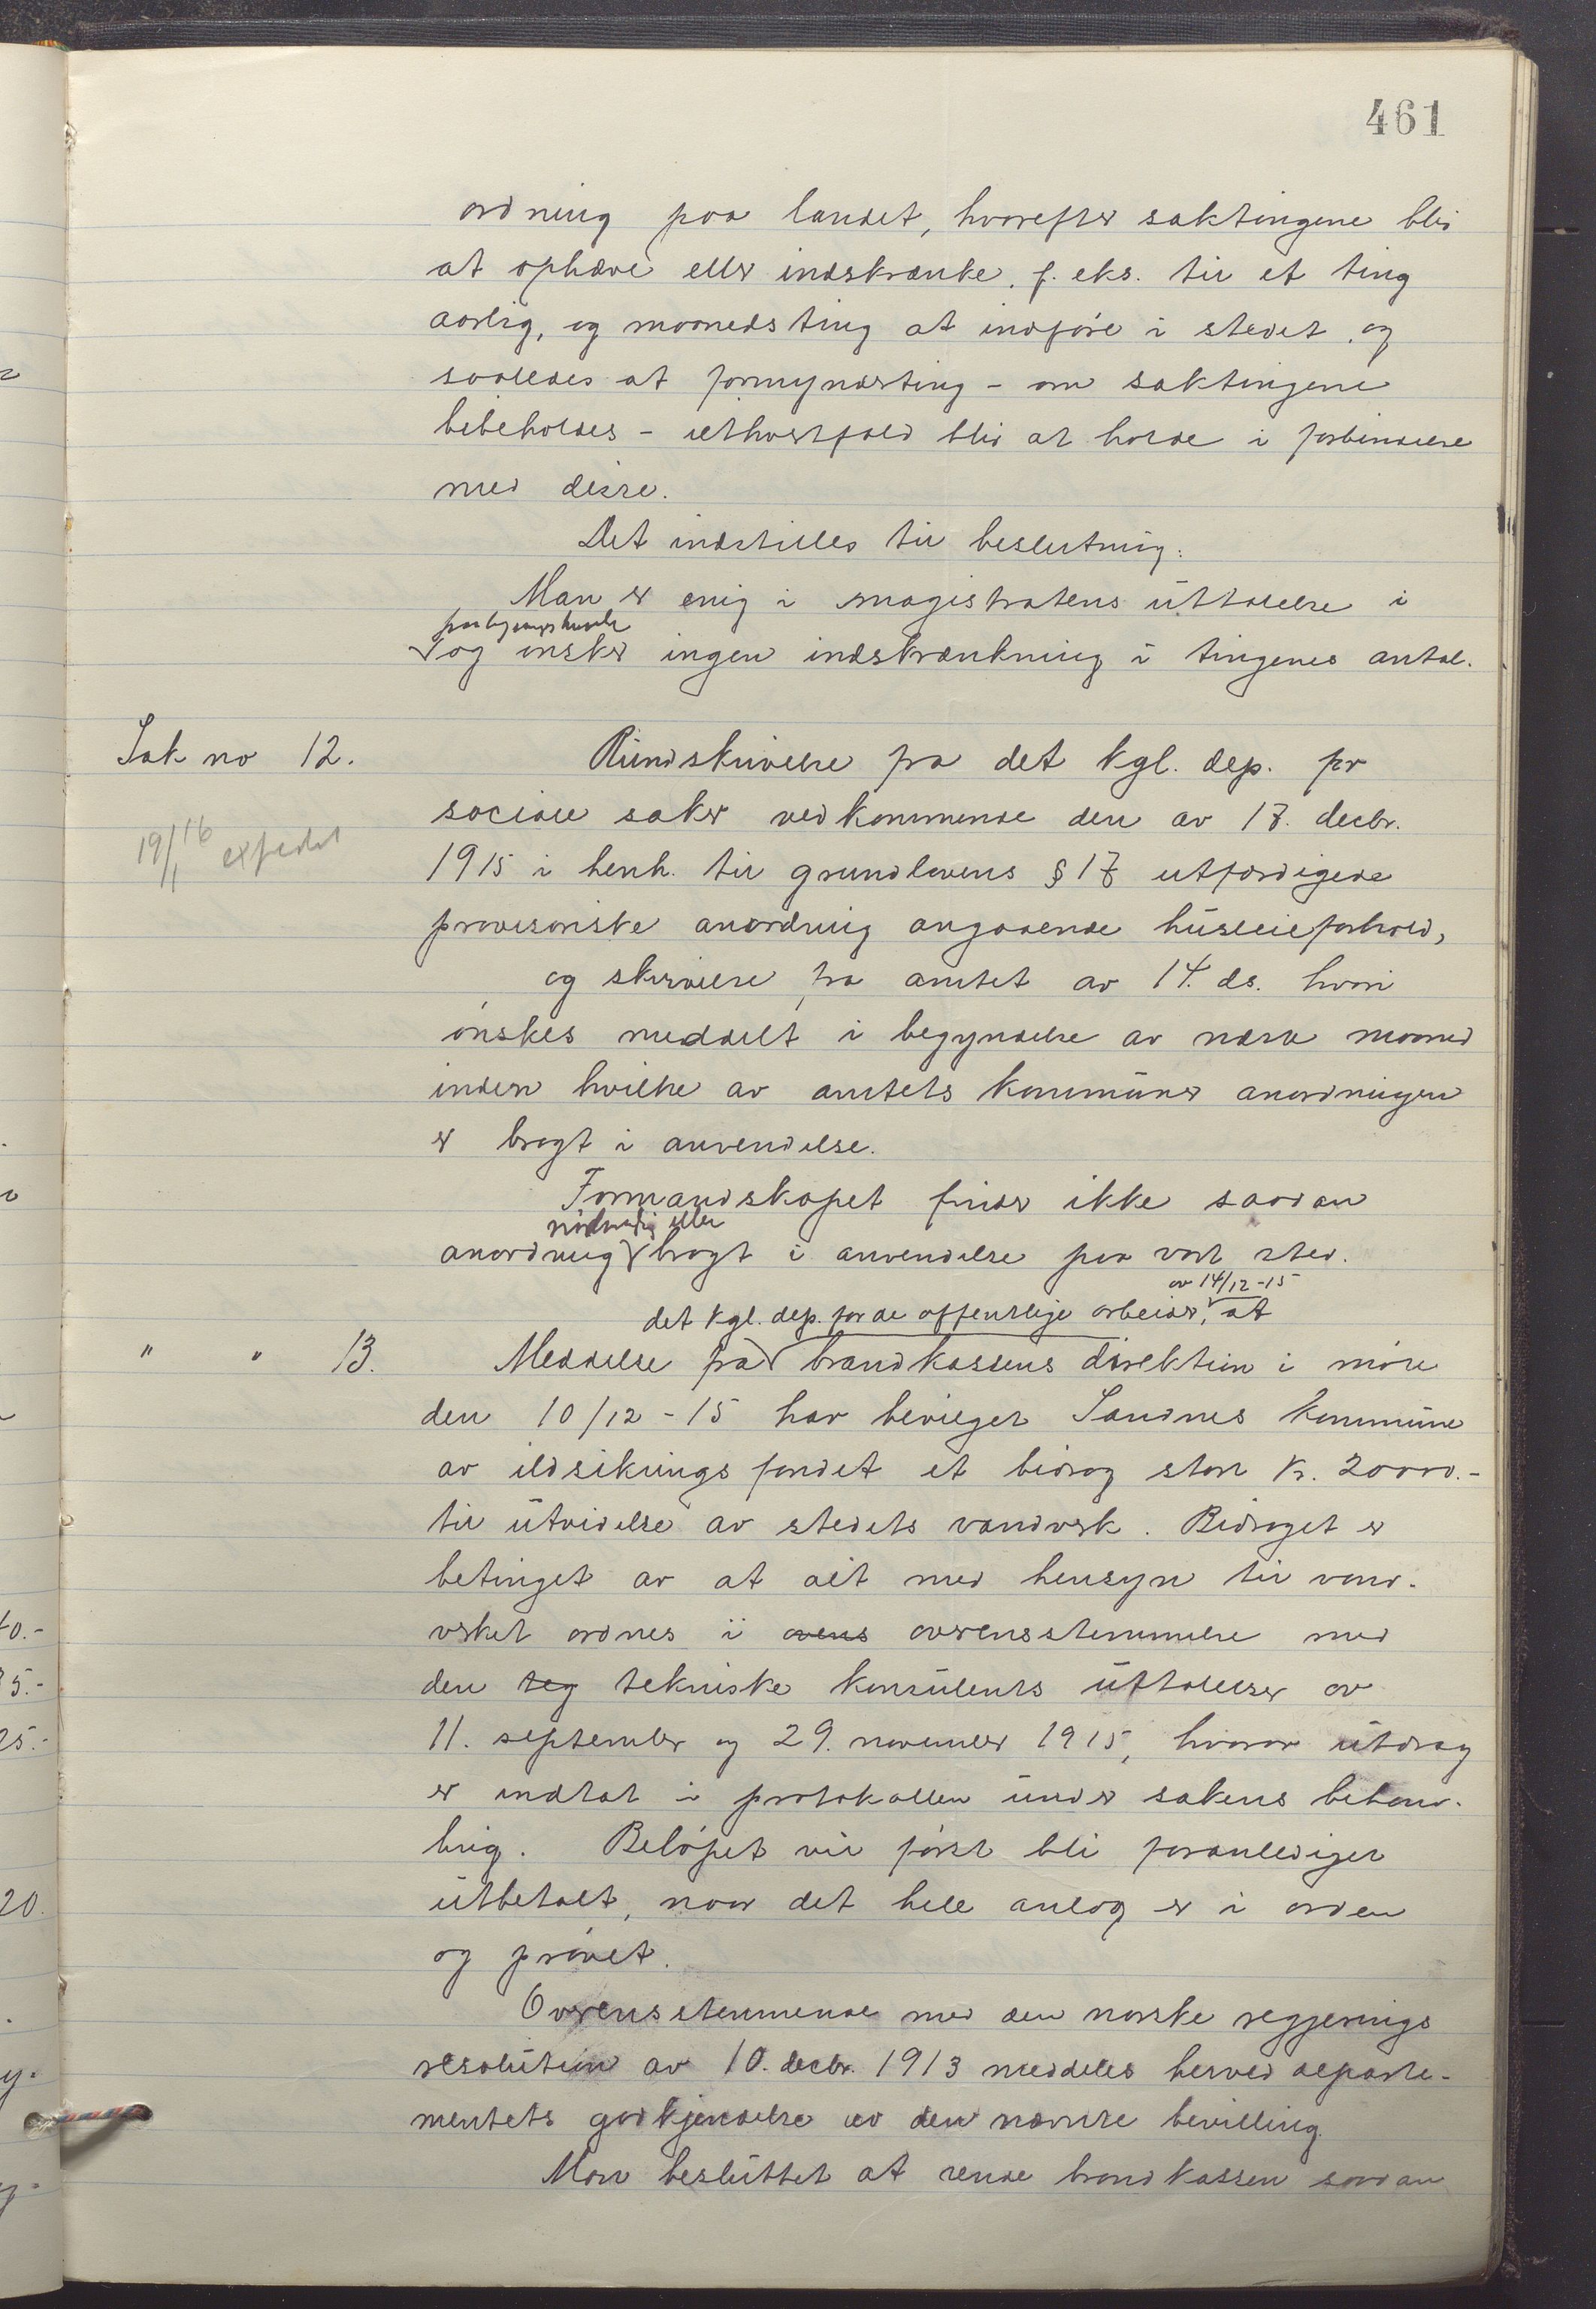 461
ordning paa landet, hvorefter saktingene blir
at ophæve eller indskrænke, f. eks. til et ting
aarlig, og maanedsting at indføre i stedet, og
saaledes at formynderting - om saktingene
bibeholdes - ialfald blir at holde i forbindelse
med disse.
Det indstilles til beslutning:
Man er enig i magistratens uttalelse i
og ønsker ingen indskrænkning i tingenes antal.
Sak no 12.
Rundskrivelse fra det kgl. dep. for
sociale saker vedkommende den av 17. decbr.
19/1 16 expedert
1915 i henh. til grundlovens § 17 utfærdigede
provisoriske anordning angaaende husleieforhold,
og skrivelse fra amtet av 14. ds. hvori
ønskes meddelt i begyndelse av næste maaned
inden hvilke av amtets kommuner anordningen
er bragt i anvendelse.
Formandskapet finder ikke saadan
nødvendig eller
anordning bragt i anvendelse paa vort sted.
av 14/12-15
det kgl. dep. for de offentlige arbeider, at
" " 13.
Meddelse fra brandkassens direktion i møte
den 10/12-15 har bevilget Sandnes kommune
av ildsikringsfondet et bidrag stort kr. 20000.-
til utvidelse av stedets vandverk. Bidraget er
betinget av at alt med hensyn til vand-
verket ordnes i overensstemmelse med
den tekniske konsulents uttalelser av
11. september og 29. november 1915, hvorav utdrag
er indtat i protokollen under sakens behand-
ling. Beløpet vil først bli foranlediget
utbetalt, naar det hele anlæg er i orden
og prøvet.
Overensstemmende med den norske regjerings
resolution av 10. decbr. 1913 meddeles herved departe-
mentets godkjendelse av den nævnte bevilling.
Man besluttet at sende brandkassen saadan